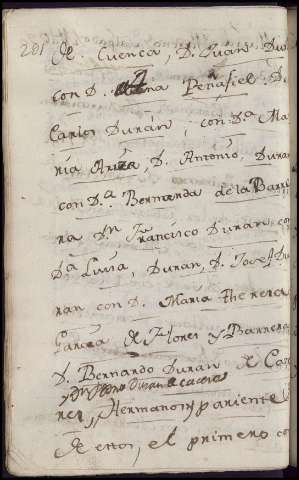 201 de Cuenca, D. Juan Du
con D. Ana Peñafiel D.
Carlos Durán, con Dª Ma
ria Ariza, D. Antonio, Duran
con D.ª Bernarda de la Barre
ra Dn Francisco Duran con
Dª Luisa, Duran, D. Josef Du
ran con D. Maria theresa
Garcia de Flores y Barrera
D. Bernardo Duran de Ca
y Dn Pedro Duran de caceres
res, Hermanos y parientes
de estos, el primero co